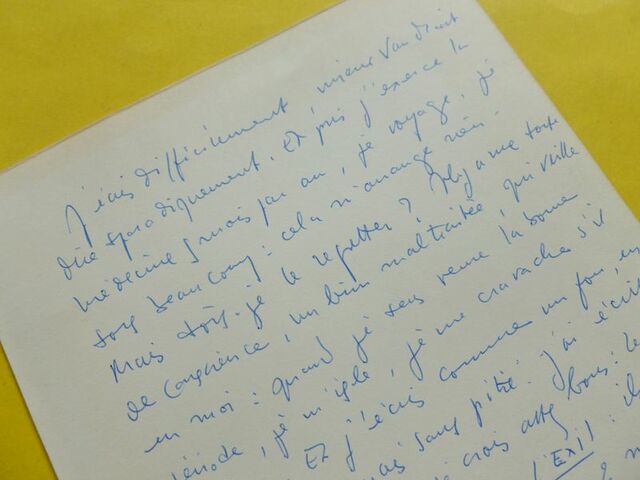 J'écris difficilement, mieux vaudrait
dire sporadiquement. Et puis j'exerce la
médecine 5 mois par an, je voyage, je
sors beaucoup : cela n'arrange rien.
Mais dois-je le regretter ? Il y a une sorte
de conscience, un bien maltraitée, qui veille
en moi : quand je sens venue la bonne
période, je m'isole, je me cravache s'il
Et j'écris comme un fou, en
sans pitié. J'ai écrit
crois assez bons : Le
L'EXIL :